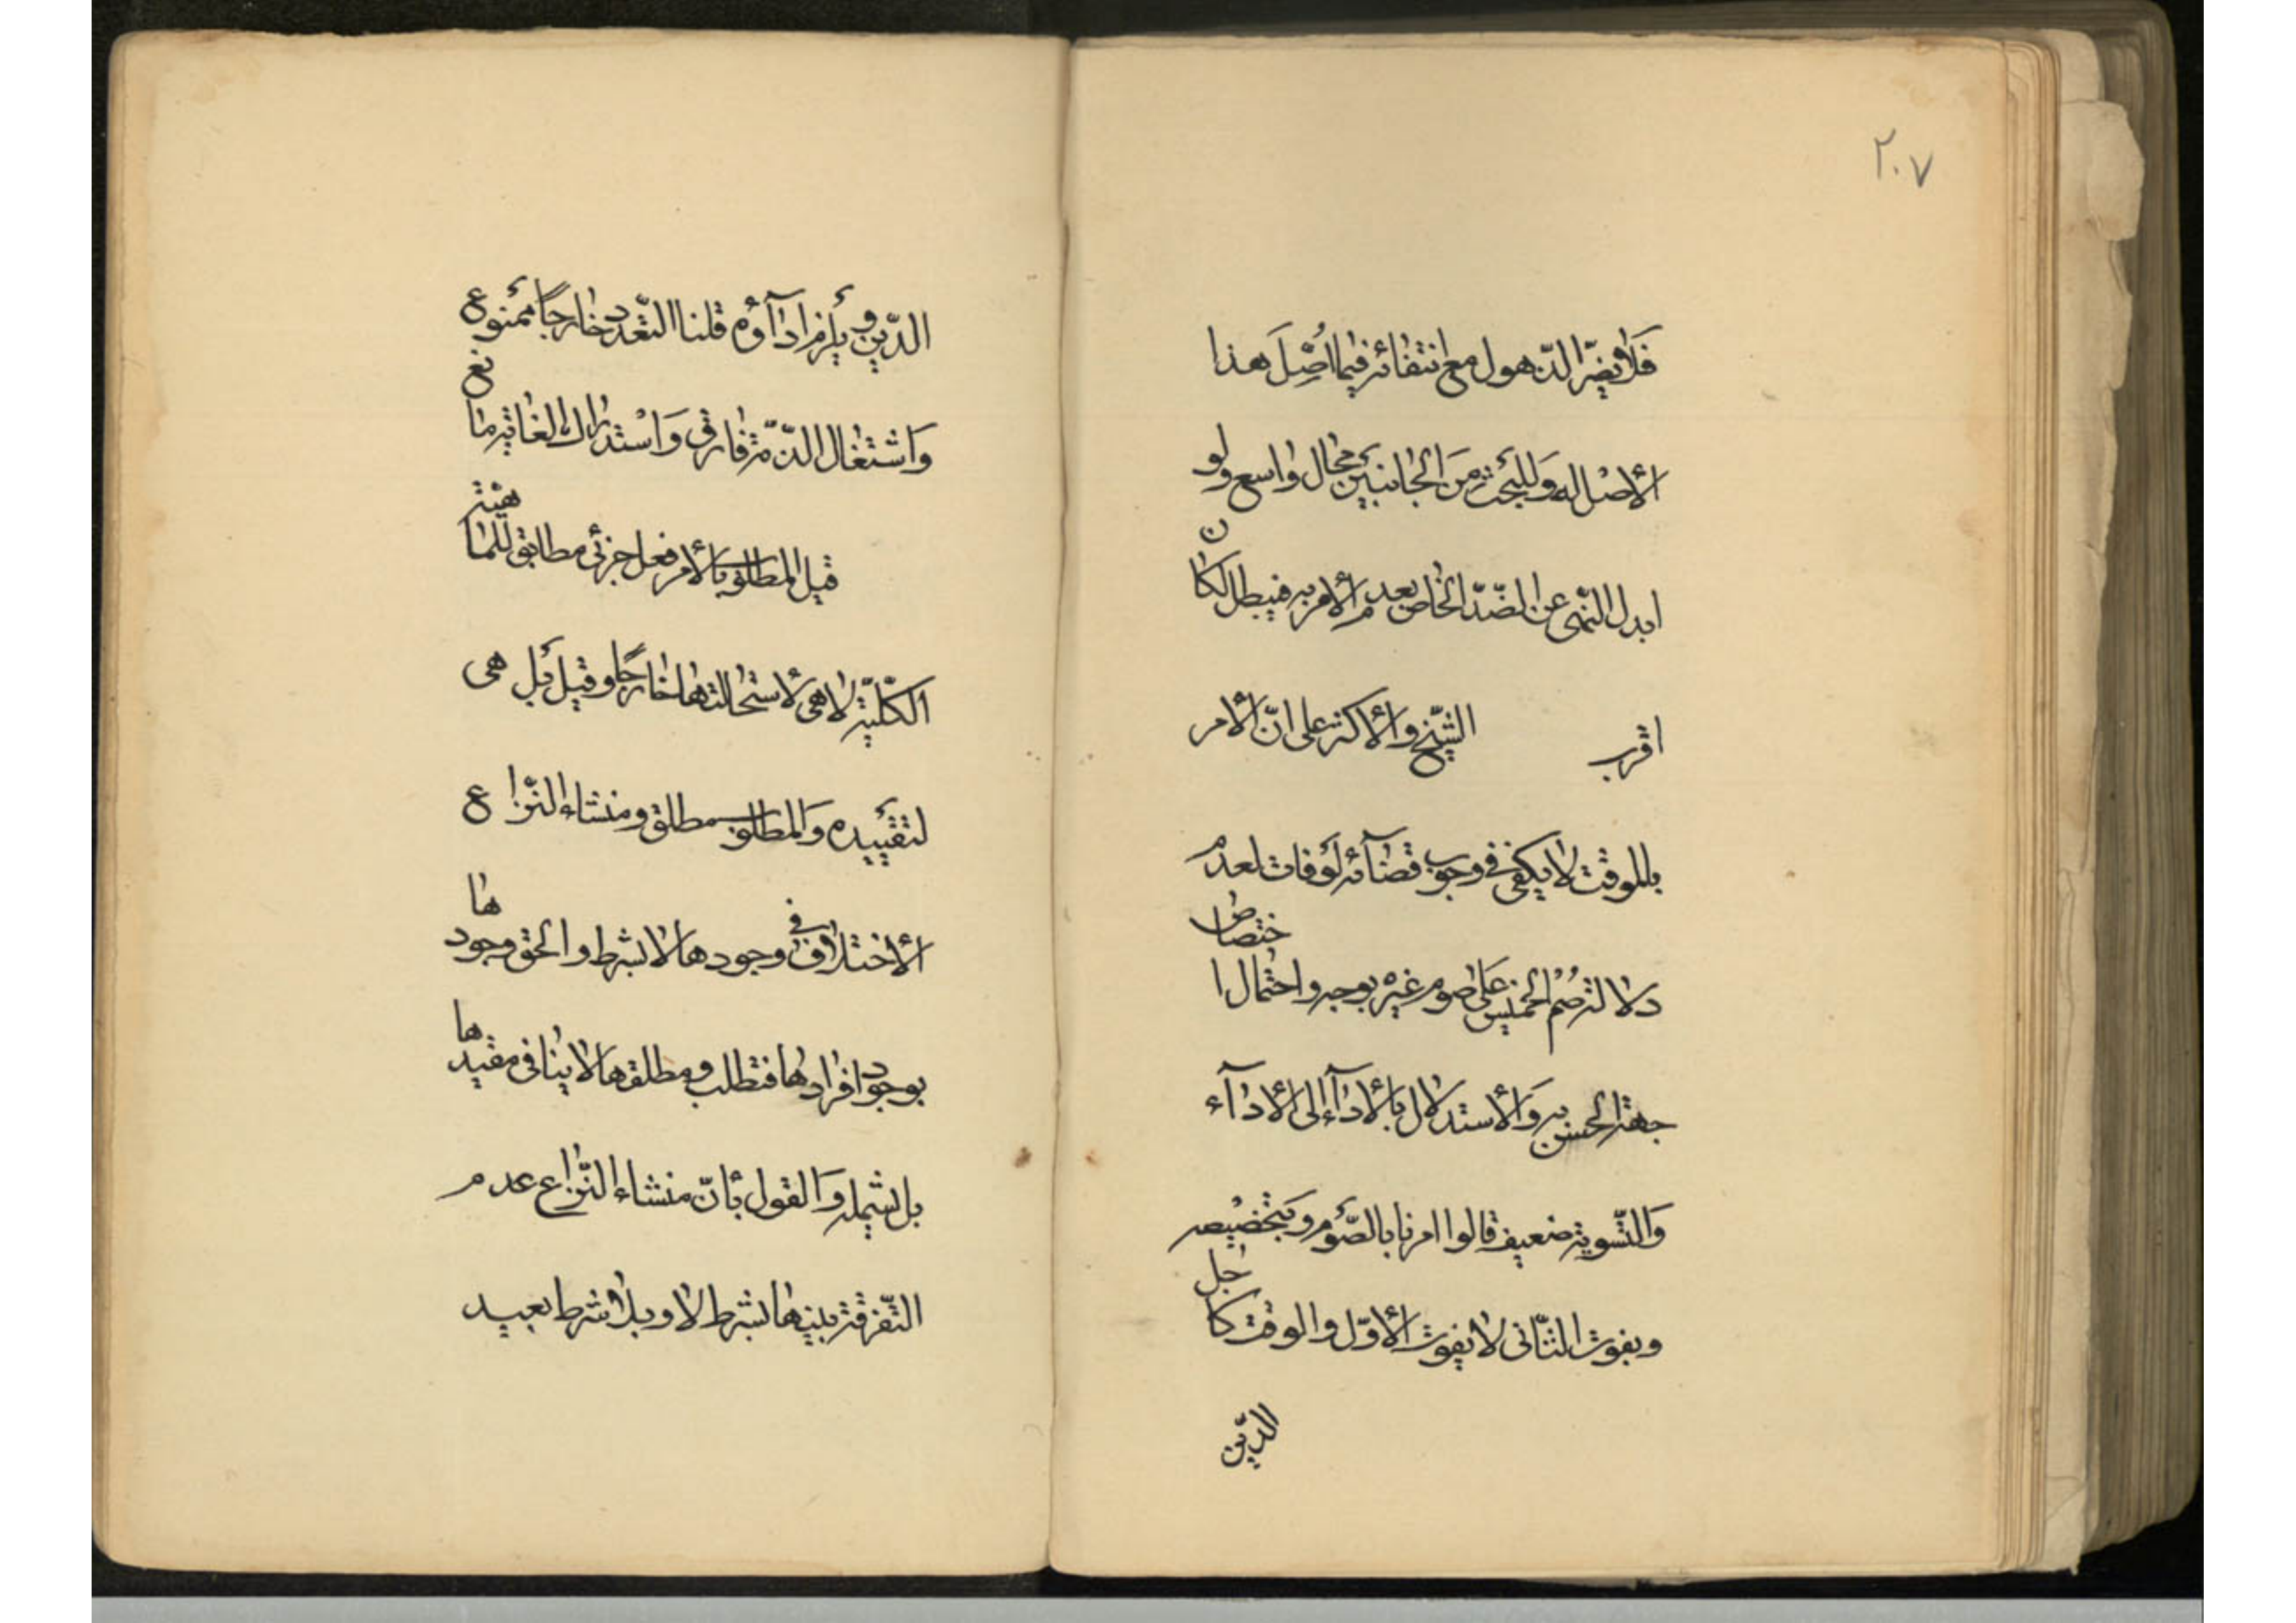 ٢٠٧
فَلا يضرّ الذّهول مع انتفائه فيما اُصّلَ هذا
الأصل له وَللبَحث منَ الجانبَين مجال واسع ولو
ابدل النّهى عن الضّدّ الخاص بعدم الأمر به فيبطل لكان
اقرب الشّيخ والأكثر على انّ الأمر
بالموقت لا يكفى فى وجوب قضآئه لَو فات لعدم
دلالة صُم الخميس عَلى صوم غيره بوجه واحتمال اختصاص
جهة الحسن به وَالأستدلال بالأدآء الى الأدآء
وَالتّسوية ضعيف قالوا امرنا بالصّوم وبتخصيصه
وبفوت الثّانى لا يفوت الأوّل والوقت كاجل
الدّين
الدّين ويلزم ادآؤه قلنا التعّدد خارجًا ممنوع
وَاشتغال الذّمّة فارق وَاستدراك الغاية مانع
قيل المطلوب بالأمر فعل جزئى مطابق للماهيّة
الكلّيّة لا هى لاستحالتها خارجًا وقيل بَل هى
لتقييده وَالمطلوب مطلق ومنشاء النّزاع
الأختلاف فى وجودها لا بشرط والحق وجودها
بوجود افرادها فتطلب ومطلقها لا ينافى مقيدها
بل يشمله وَالقول بأنّ منشاء النّزاع عدم
التّفرقة بينها بشرط لا وبلا شرط بعيد